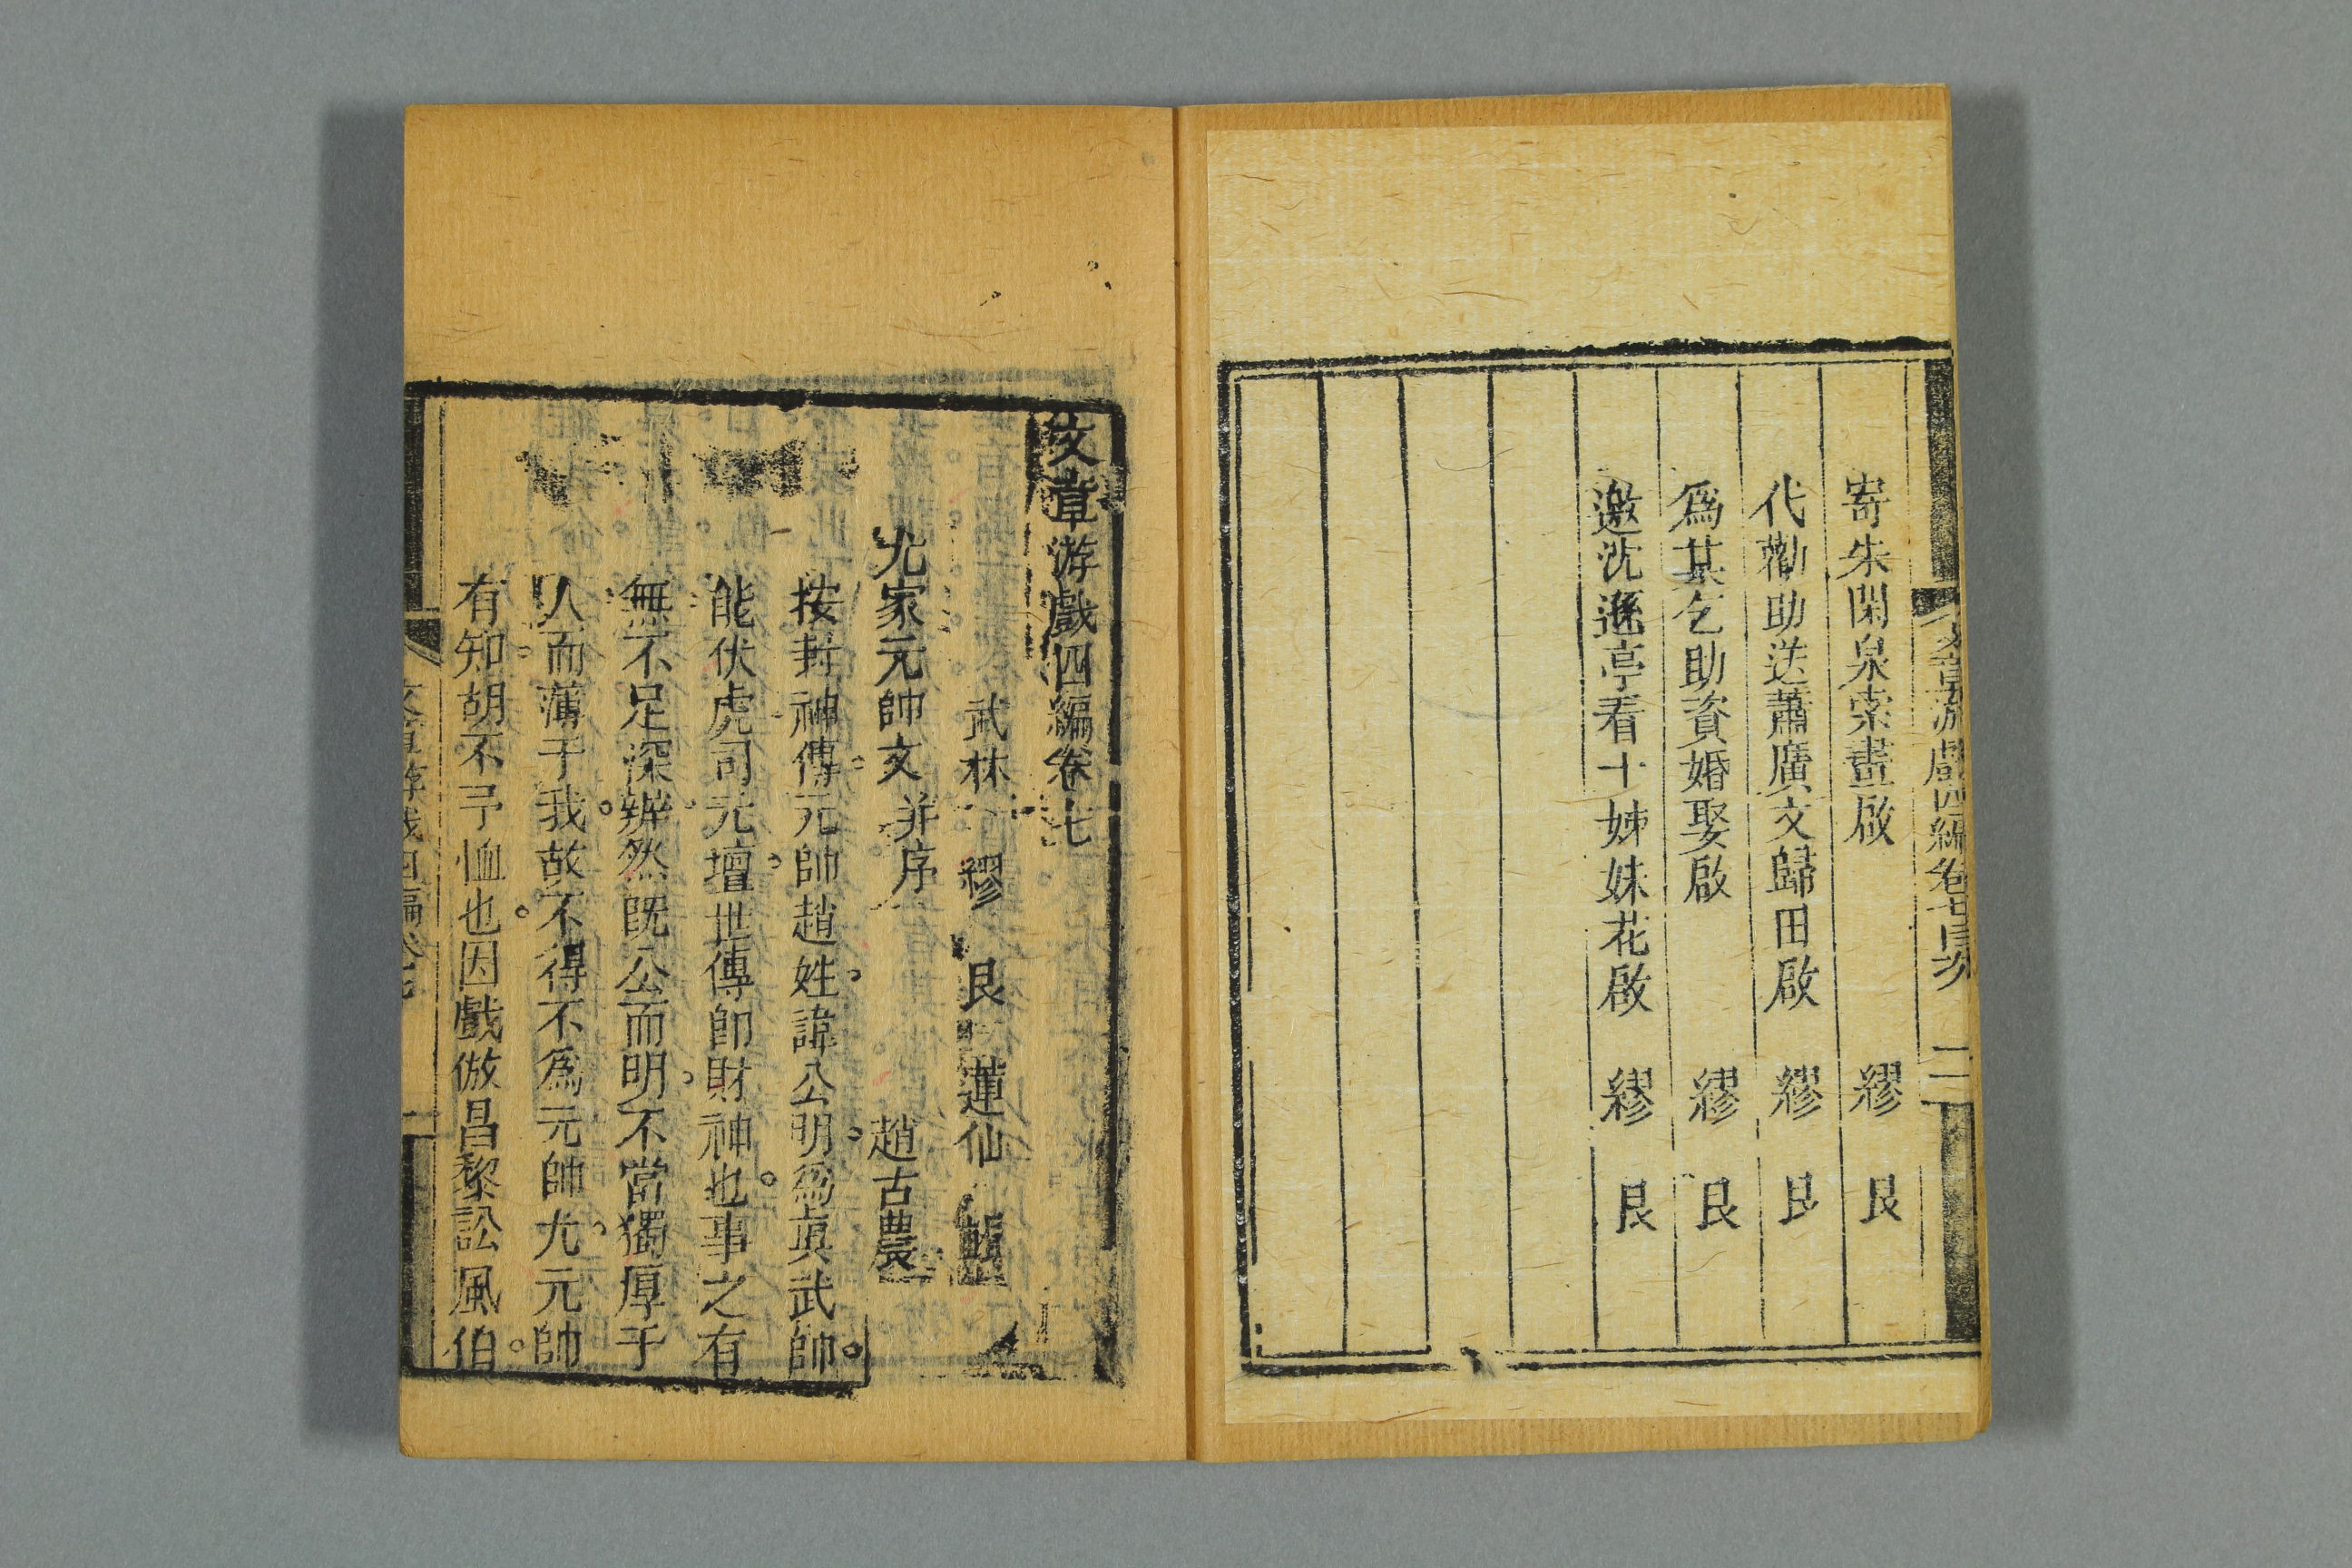 文章游戲四編卷七目次 二
寄朱閑泉索畫啟 繆艮
代勸助送蕭廣文歸田啟 繆艮
爲某乞助資婚娶啟 繆艮
邀沈遜亭看十姊妹花啟 繆艮
文章游戲四編卷七
武林 繆艮 蓮仙
尤家元帥文 并序 趙古農
按封神傳元帥趙姓。諱公明。爲眞武帥。
能伏虎司元壇。世傳卽財神也。事之有
無不足深辨。然旣公而明。不當獨厚于
人而薄于我。故不得不爲元帥尤。元帥
有知。胡不予恤也。因戲倣昌黎訟風伯。
文章游戲四編卷七 一